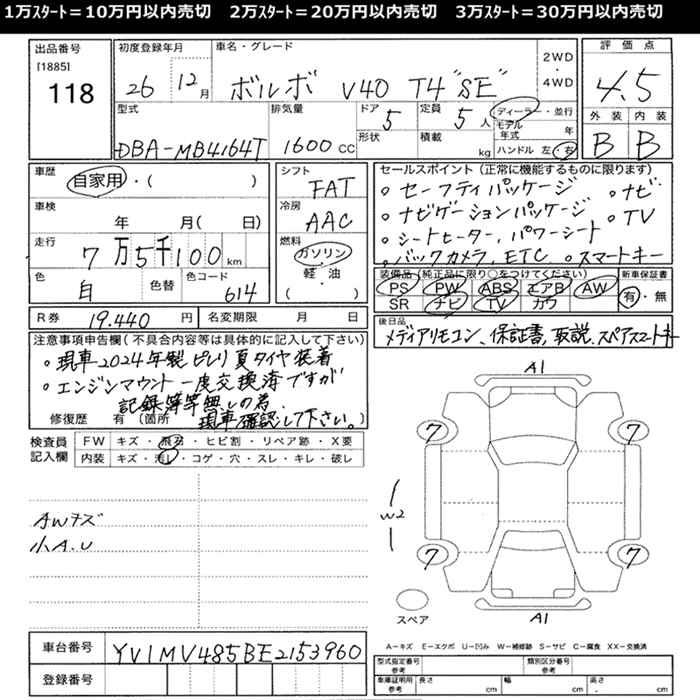 1万ｽﾀｰﾄ＝10万円以内売切　2万ｽﾀｰﾄ＝20万円以内売切　3万ｽﾀｰﾄ＝30万円以内売切
出品番号
[1885]
118
初度登録年月
26 年 12 月
車名・グレード
ボルボ V40 T4 "SE"
2WD
・
4WD
評価点
4.5
外装 内装
B B
型式
DBA-MB4164T
排気量
1600 cc
ドア 5
形状
定員 5 人
積載 kg
ディーラー・並行
モデル年式 年
ハンドル 左・右
車歴
自家用・( )
車検
年 月( 日)
走行
7万5千100 km
色
白
色替
色コード
614
シフト
FAT
冷房
AAC
燃料
ガソリン
・
軽・油
( )
セールスポイント（正常に機能するものに限ります）
○ セーフティパッケージ ○ ナビ
○ ナビゲーションパッケージ ○ TV
○ シートヒーター、パワーシート
○ バックカメラ、ETC ○ スマートキー
装備品（純正品に限り○をつけてください）
PS PW ABS エアB AW
SR ナビ TV カワ
新車保証書
有・無
R券 19,440 円
名変期限 月 日
後日品
メディアリモコン、保証書、取説、スペアスマートキー
注意事項申告欄（不具合内容等は具体的に記入して下さい）
○ 現車2024年製ピレリ夏タイヤ装着
○ エンジンマウント一度交換済ですが
記録簿等無しの為、
現車確認して下さい。
修復歴 有（箇所
検査員
記入欄
FW キズ・飛石・ヒビ割・リペア跡・X要
内装 キズ・汚レ・コゲ・穴・スレ・キレ・破レ
AWキズ
小A.U
A1
7 7
W2
7 7
スペア
A1
車台番号 YV1MV485BE2153960
登録番号
A－キズ E－エクボ U－凹み W－補修跡 S－サビ C－腐食 XX－交換済
型式指定番号
参考
類別区分番号
参考
車庫証明用
参考
長さ cm 幅 cm 高さ cm